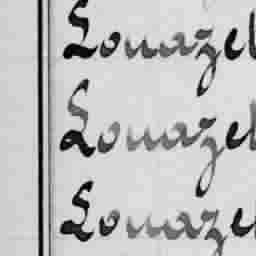 Louazel
Louazel
Louazel